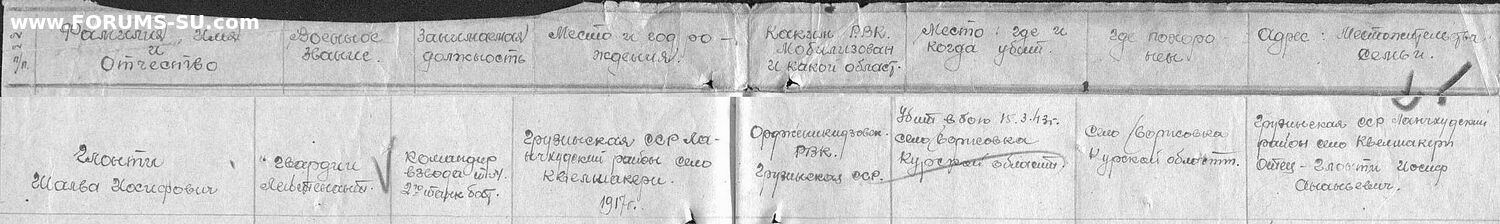 www.FORUMS-SU.com
№№ п/п.
Фамилия, Имя
и
Отчество
Военное
звание.
Занимаемая
должность
Место и год ро-
ждения.
Каким РВК.
Мобилизован
и какой област.
Место: где и
когда убит.
Где похоро-
нен
Адрес: Местожительства
семьи.
Глонти
Шалва Иосифович
Гвардии
Лейтенант.
Командир
взвода
2го танк. бат.
Грузинская ССР Лан-
чхудский район село
1917г.
Орджоникидзовск.
РВК.
Грузинская ССР.
Убит в бою 15.3.43г.
село Борисовка
Курской области
село Борисовка
Курской области.
Грузинская ССР Ланчхудский
район село
Отец - Глонти Иосиф